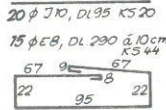 20 ø J10, DL95 KS20
15 ø E8, DL 290 á 10cm
KS44
67 9 67
8
22 22
95